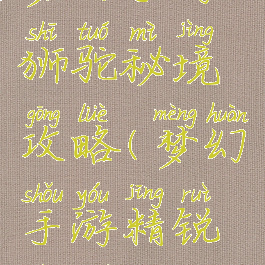 shī tuó mì jìng
狮驼秘境
gōng lüè mèng huàn
攻略(梦幻
shǒu yóu jīng ruì
手游精锐